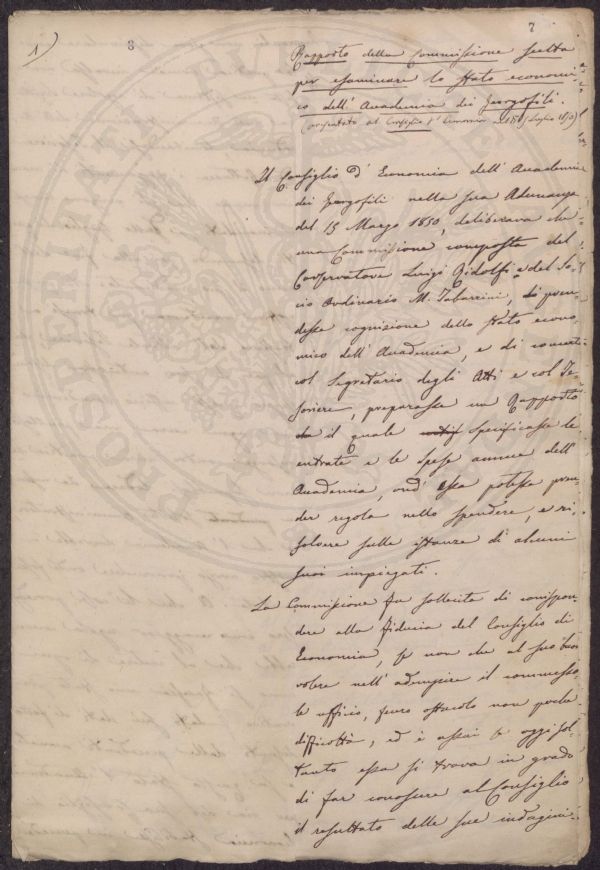 1)
8
7
Rapporto della Commissione scelta
per esaminare lo stato economi-
co dell' Accademia dei Georgofili.
(presentato al Consiglio d'Economia Luglio 1850)
Il Consiglio d' Economia dell' Accademia
dei Georgofili nella sua Adunanza
del 15 Marzo 1850, deliberava che
una Commissione composta del
Conservatore Luigi Ridolfi e del So-
cio Ordinario M. Tabarrini, si pren-
desse cognizione dello Stato econo-
mico dell' Accademia, e di concerto
col Segretario degli Atti e col Te-
soriere, preparasse un Rapporto
il quale specificasse le
entrate e le spese annue dell'
Accademia, ond' essa potesse pren-
der regola nello spendere, e ri-
solvere sulle istanze di alcuni
suoi impiegati.
La Commissione fu sollecita di corrispon-
dere alla fiducia del Consiglio di
Economia, se non che al suo buon
volere nell' adempire il commesso-
le ufficio, fecero ostacolo non poche
difficoltà, ed è assai se oggi sol-
tanto essa si trova in grado
di far conoscere al Consiglio
il resultato delle sue indagini.
PROSPERITATI